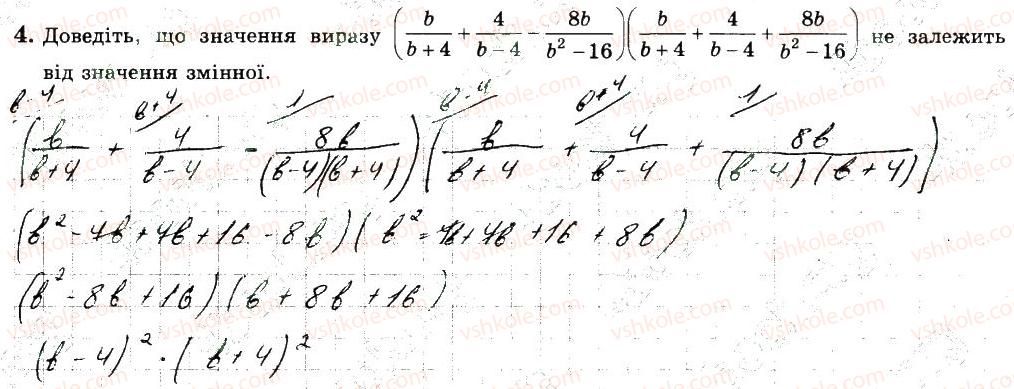 4. Доведіть, що значення виразу (b/(b+4) + 4/(b−4) − 8b/(b²−16))(b/(b+4) + 4/(b−4) + 8b/(b²−16)) не залежить
від значення змінної.
b-4 b+4 1 b-4 b+4 1
(b/(b+4) + 4/(b-4) - 8b/((b-4)(b+4)))(b/(b+4) + 4/(b-4) + 8b/((b-4)(b+4)))
(b² - 4b + 4b + 16 - 8b)(b² - 4b + 4b + 16 + 8b)
(b² - 8b + 16)(b + 8b + 16)
(b - 4)² · (b + 4)²